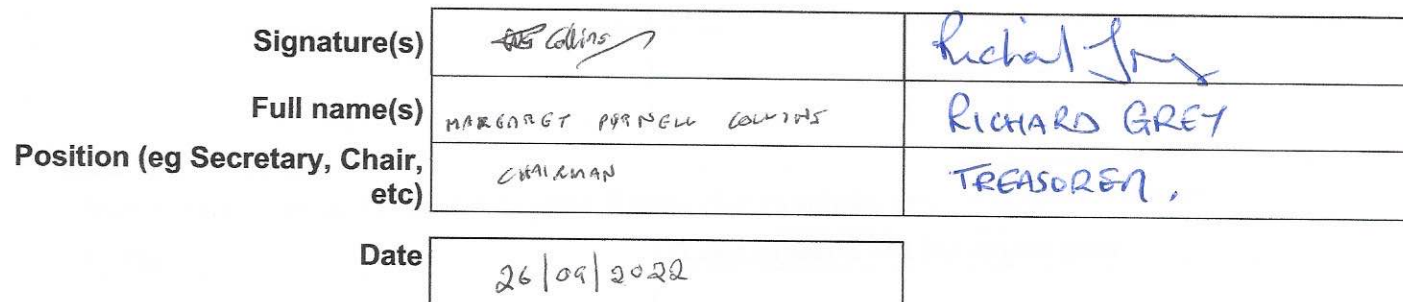 Signature(s) Collins Richard Grey
Full name(s) MARGARET PURNELL COLLINS RICHARD GREY
Position (eg Secretary, Chair, CHAIRMAN TREASURER,
etc)
Date 26/09/2022